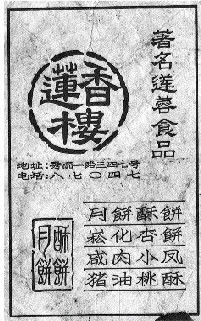 著名莲蓉食品
蓮香樓
地址:秀丽一路三四七号
电话:八七〇四七
月餅酥餅
崧化杏餅
咸肉小凤
猪油桃酥
酥餅
月餅